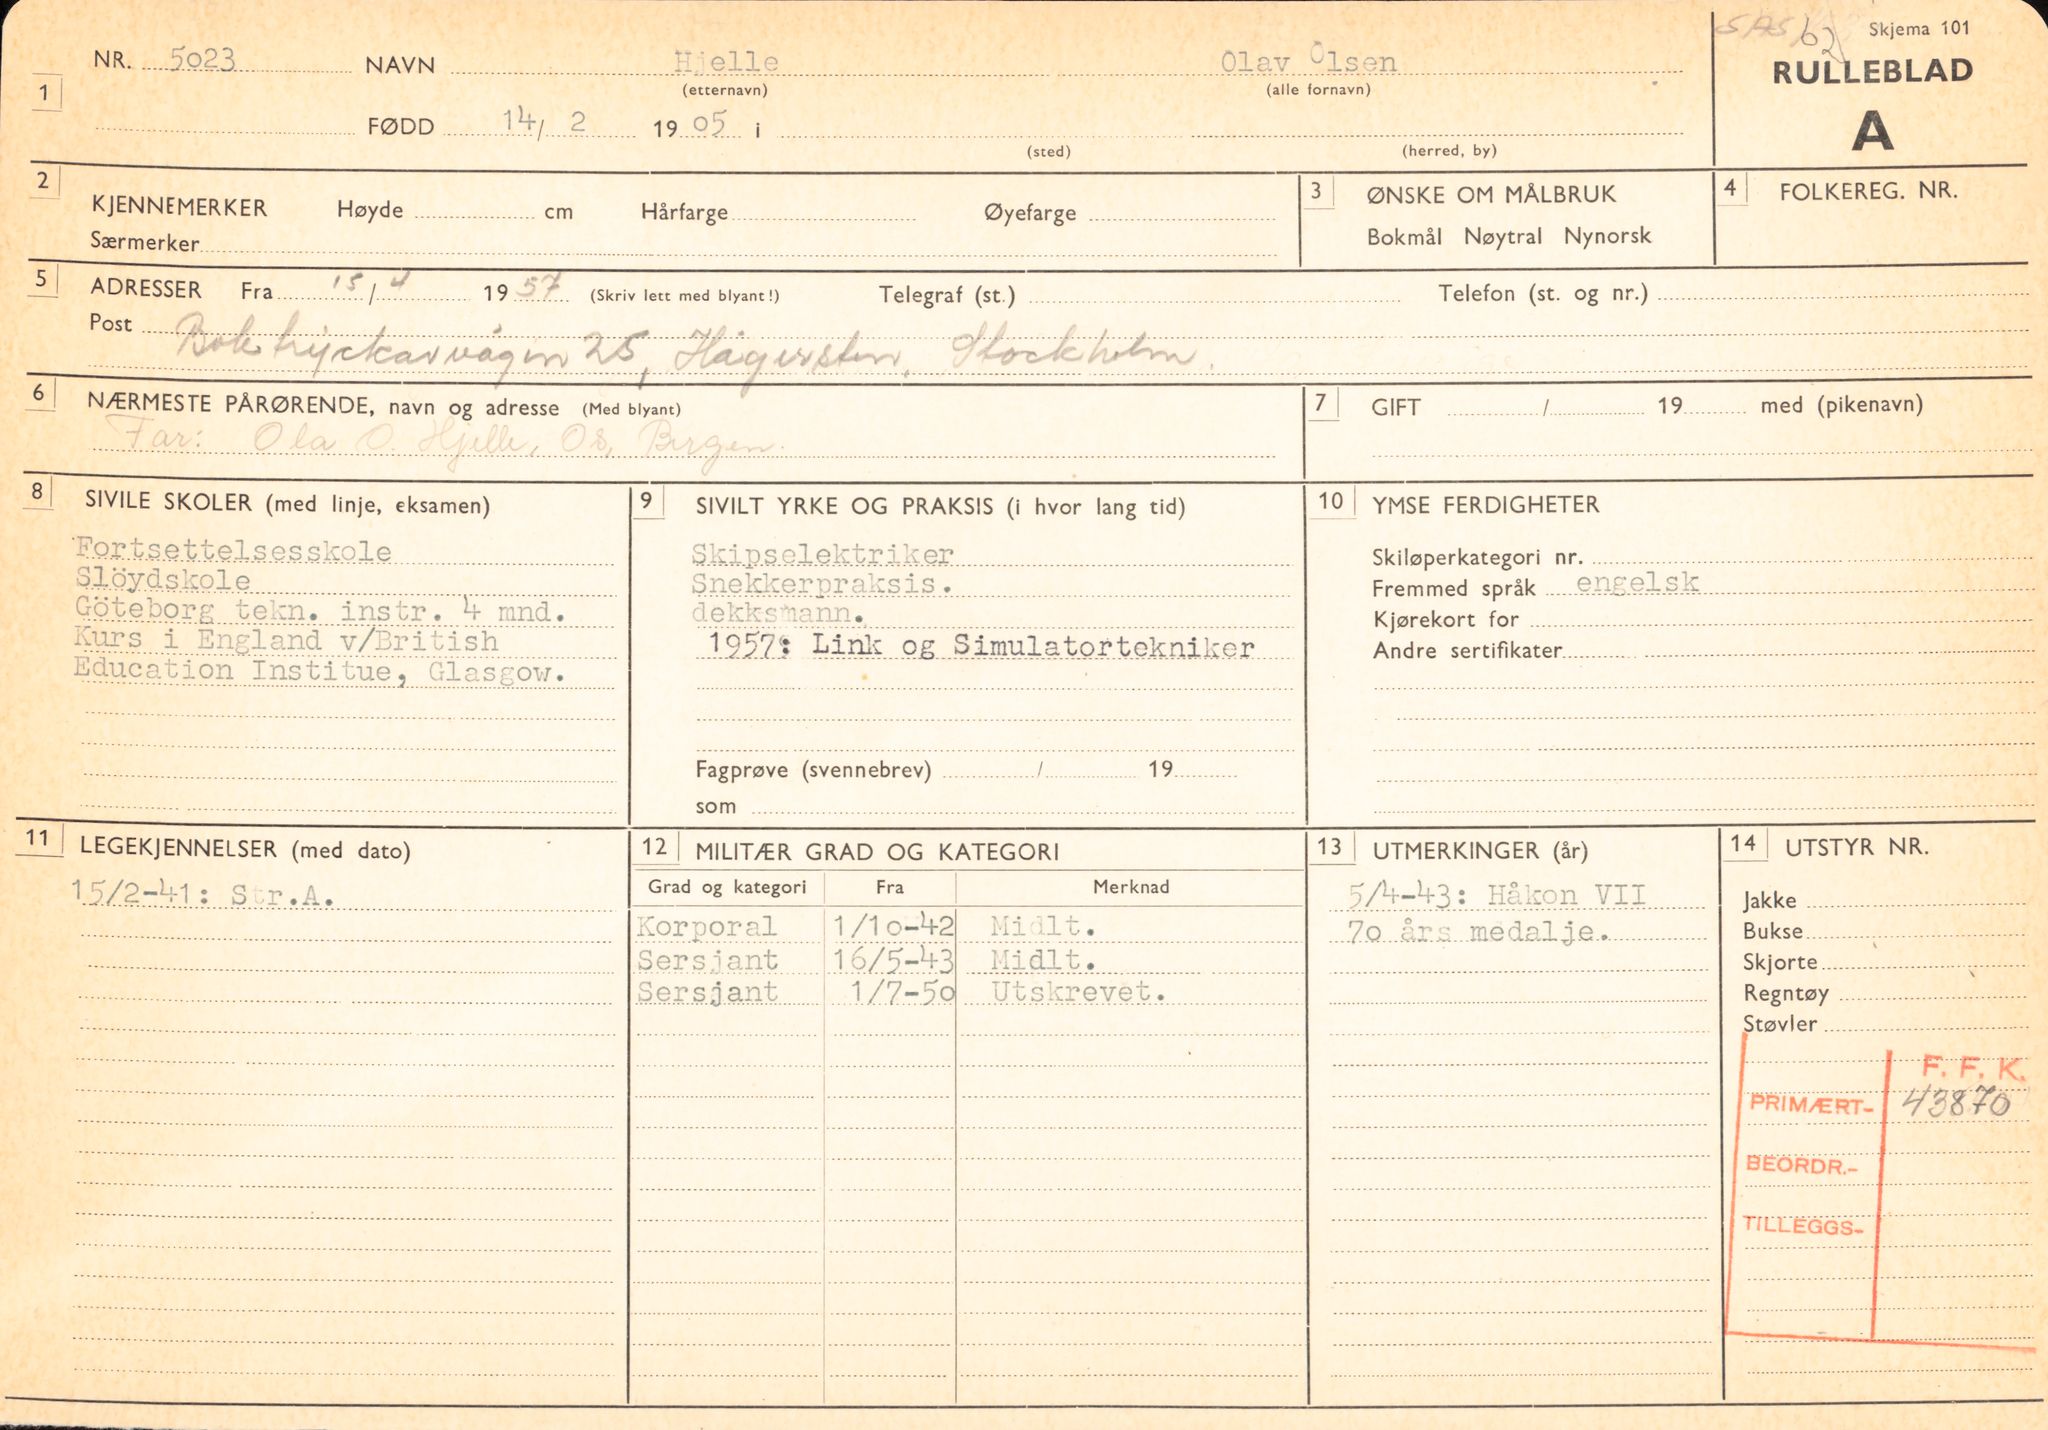 Skjema 101
RULLEBLAD
A
1 NR. 5023 NAVN Hjelle Olav Olsen
(etternavn) (alle fornavn)
FØDD 14/ 2 19 05 i
(sted) (herred, by)
2 KJENNEMERKER Høyde cm Hårfarge Øyefarge
Særmerker
3 ØNSKE OM MÅLBRUK
Bokmål Nøytral Nynorsk
4 FOLKEREG. NR.
5 ADRESSER Fra 15/4 19 57 (Skriv lett med blyant!) Telegraf (st.) Telefon (st. og nr.)
Post Boktryckarvägen 25, Hägersten, Stockholm.
6 NÆRMESTE PÅRØRENDE, navn og adresse (Med blyant)
Far: Ola O. Hjelle, Os, Bergen.
7 GIFT / 19 med (pikenavn)
8 SIVILE SKOLER (med linje, eksamen)
Fortsettelsesskole
Slöydskole
Göteborg tekn. instr. 4 mnd.
Kurs i England v/British
Education Institue, Glasgow.
9 SIVILT YRKE OG PRAKSIS (i hvor lang tid)
Skipselektriker
Snekkerpraksis.
dekksmann.
1957: Link og Simulatortekniker
Fagprøve (svennebrev) / 19
som
10 YMSE FERDIGHETER
Skiløperkategori nr.
Fremmed språk engelsk
Kjørekort for
Andre sertifikater
11 LEGEKJENNELSER (med dato)
15/2-41: Str.A.
12 MILITÆR GRAD OG KATEGORI
Grad og kategori Fra Merknad
Korporal 1/10-42 Midlt.
Sersjant 16/5-43 Midlt.
Sersjant 1/7-50 Utskrevet.
13 UTMERKINGER (år)
5/4-43: Håkon VII
70 års medalje.
14 UTSTYR NR.
Jakke
Bukse
Skjorte
Regntøy
Støvler
F. F. K.
PRIMÆRT- 43870
BEORDR.-
TILLEGGS-